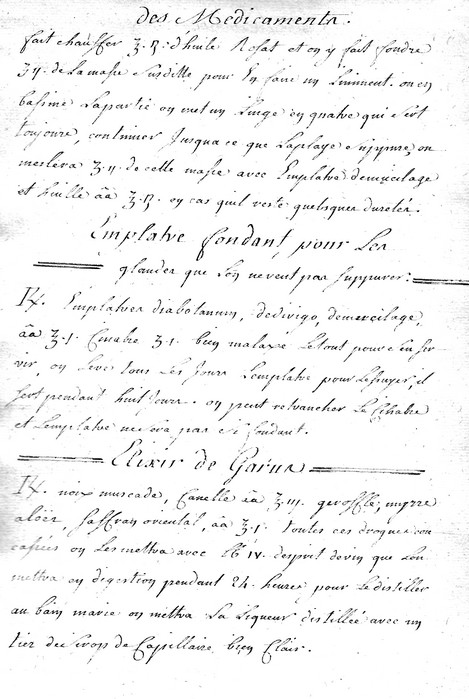 des Medicaments.
fait chauffer ʒ. ß. d'huile Rosat et on y fait fondre
ʒ ij. de La masse Susditte pour En faire un Liniment. on en
bassine La partie on met un Linge en quatre qui Sert
toujours, continuer Jusqua ce que La playe Suppure, on
meslera ʒ. ij. de cette masse avec Emplatre de mucilage
et huille āā ʒ. ß. en cas quil reste quelques duretés.
Emplatre fondant, pour Les
glandes que L'on ne veut pas Suppurer.
℞. Emplatres diabotanum, de divigo, de mucilage,
āā ʒ. j. Cinabre ʒ. j. bien malaxé Le tout pour S'en Ser
vir, on Leve tous Les Jours L'emplatre pour L'essuyer, il
Sert pendant huit Jours. on peut retrancher Le Cinabre
et L'emplatre ne Sera pas Si fondant.
Elixir de Garus
℞. noix muscade, Canelle āā ʒ. iij. geroffle, mirre
aloës, Saffran oriental, āā ʒ. j. toutes ces drogues con
cassées on Les mettra avec ℔ iv. d'esprit de vin que L'on
mettra en digestion pendant 24. heures pour Le distiller
au bain marie on mettra La Liqueur distillée avec un
tier de Sirop de Capillaire bien Clair.